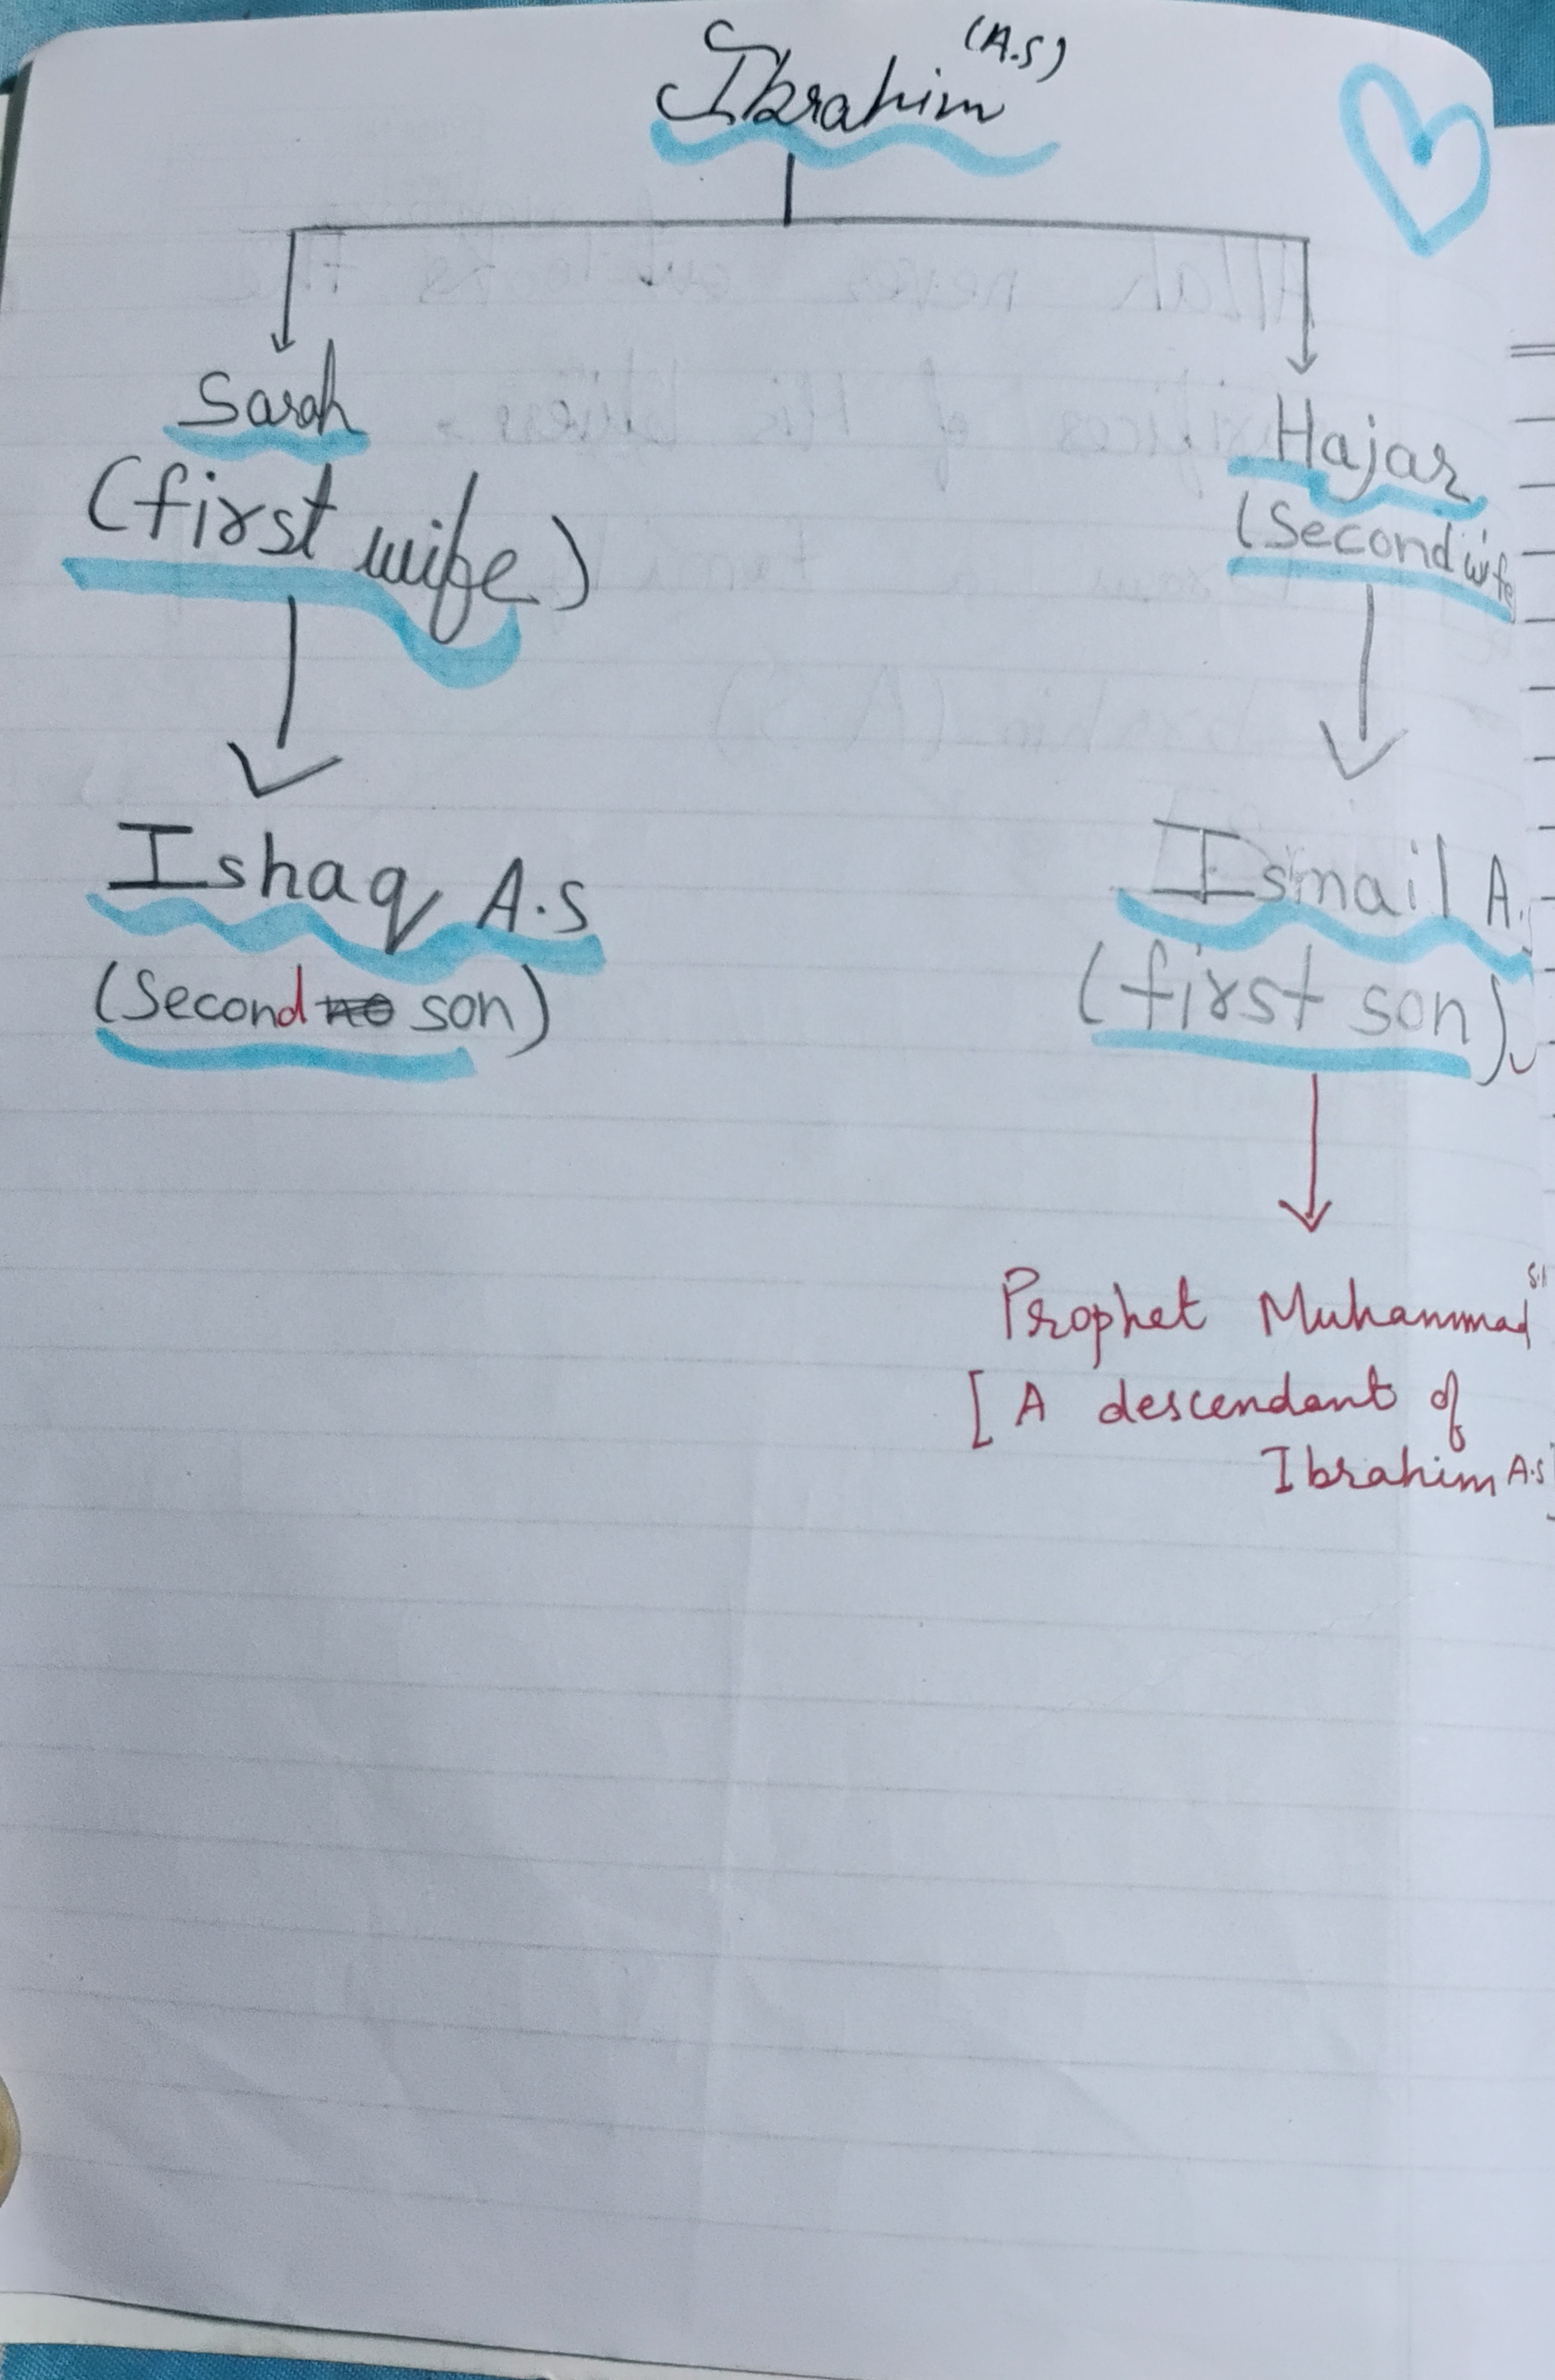 Ibrahim (A.S)
Sarah
(first wife)
Hajar
(Second wife
Ishaq A.S
(Second no son)
Ismail A.
(first son)
Prophet Muhammad
[A descendant of
Ibrahim A.S]